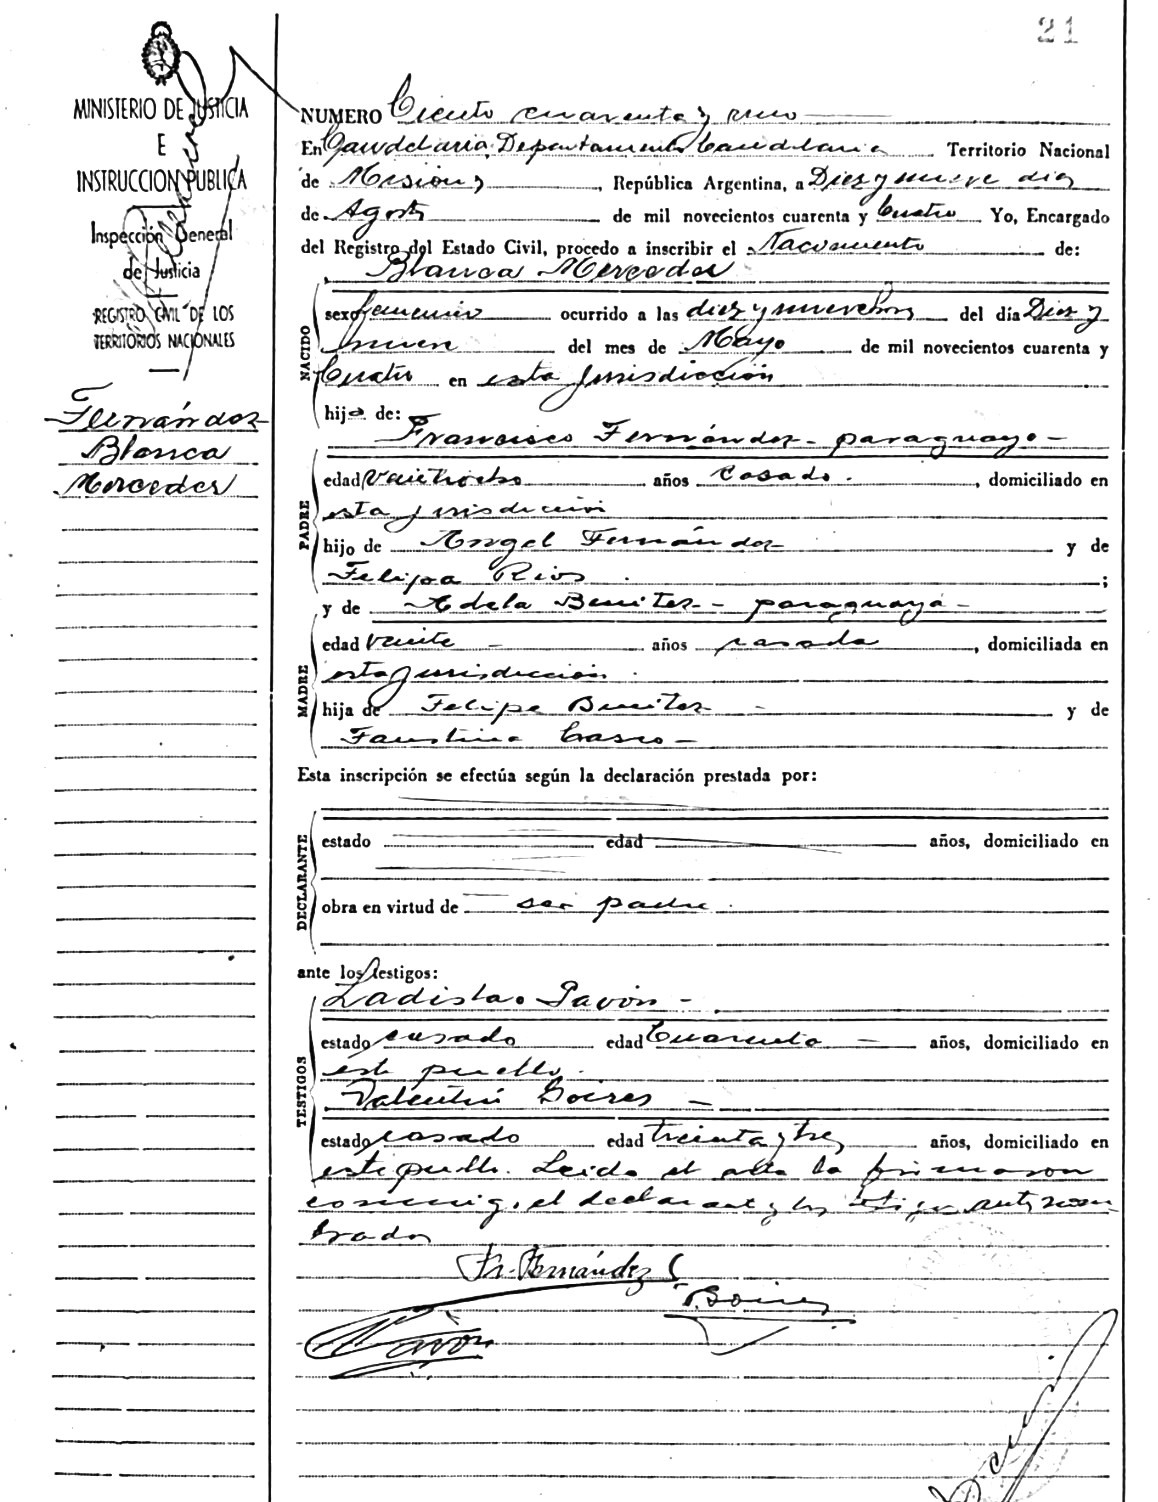 21
MINISTERIO DE JUSTICIA
E
INSTRUCCION PUBLICA
Inspección General
de Justicia
REGISTRO CIVIL DE LOS
TERRITORIOS NACIONALES
Fernández
Blanca
Mercedes
NUMERO Ciento cuarenta y uno
En Candelaria, Departamento Candelaria Territorio Nacional
de Misiones, República Argentina, a Diez y nueve días
de Agosto de mil novecientos cuarenta y Cuatro Yo, Encargado
del Registro del Estado Civil, procedo a inscribir el Nacimiento de:
Blanca Mercedes
NACIDO
sexo femenino ocurrido a las diez y nueve horas del día Diez y
nueve del mes de Mayo de mil novecientos cuarenta y
Cuatro en esta Jurisdicción
hija de:
Francisco Fernández - paraguayo -
PADRE
edad Veintiocho años casado. , domiciliado en
esta jurisdicción
hijo de Angel Fernández y de
Felipa Rios. ;
y de Adela Benitez - paraguaya -
MADRE
edad Veinte - años casada , domiciliada en
esta jurisdicción.
hija de Felipe Benitez - y de
Faustina Casco -
Esta inscripción se efectúa según la declaración prestada por:
DECLARANTE
estado edad años, domiciliado en
obra en virtud de ser padre.
ante los testigos:
TESTIGOS
Ladislao Pavón -
estado casado edad Cuarenta - años, domiciliado en
este pueblo.
Valentín -
estado casado edad treinta y tres años, domiciliado en
este pueblo. Leída el acta la firmaron
conmigo, el declarante y los testigos antenom
brados
Fr. Fernández
Pavón